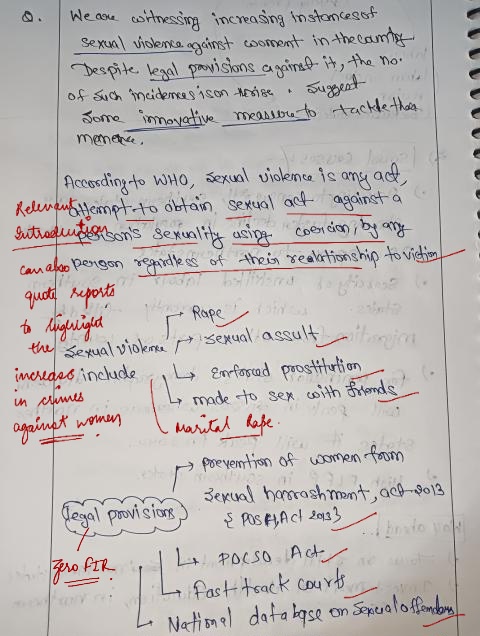 Q. We are witnessing increasing instances of
sexual violence against woment in the country
Despite legal provisions against it, the no.
of such incidences is on therise. Suggest
Some innovative measure to tackle this
menence.
According to WHO, sexual violence is any act,
attempt to obtain sexual act against a
person's sexuality using coercion, by any
person regardless of their relationship to victim
Relevant
Introduction
can also
quote reports
to highlight
the
increase
in crimes
against women
sexual violence include
Rape
sexual assult
Enforced prostitution
made to sex with friends
Marital Rape.
legal provisions
Zero FIR
prevention of women from
Sexual harrashment, act-2013
{ POSH, Act 2013 }
POCSO Act
fast track courts
National database on sexual offenders